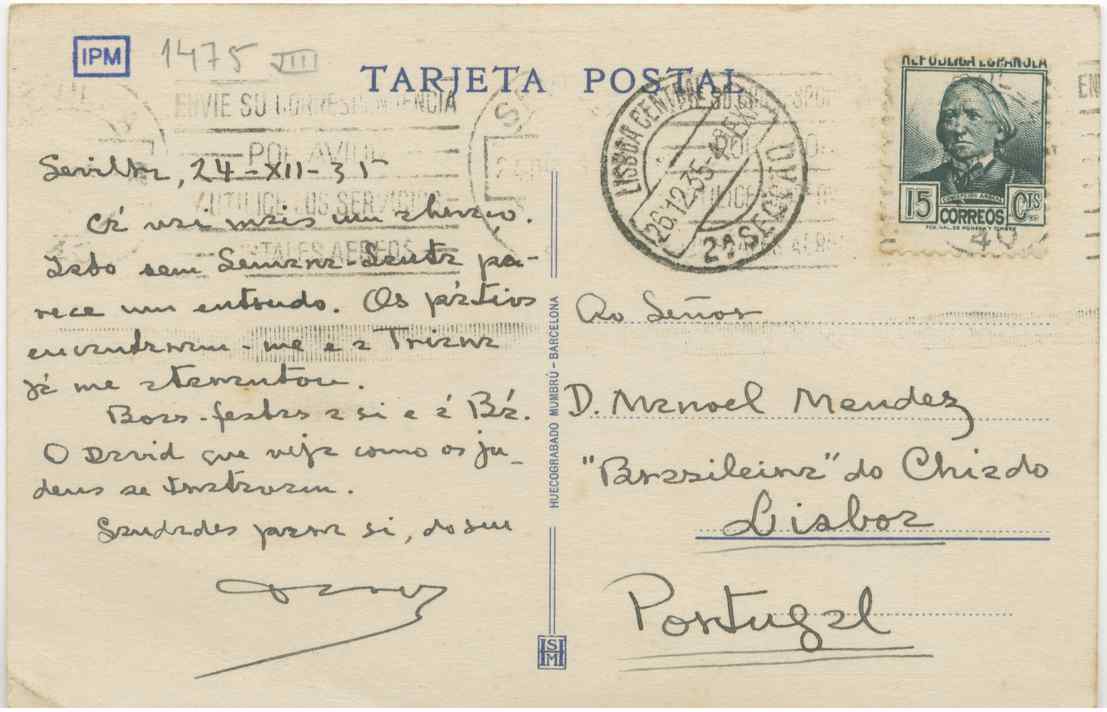 IPM
1475 VIII
TARJETA POSTAL
ENVIE SU CORRESPONDENCIA
POR AVION
Y UTILICE LOS SERVICIOS
POSTALES AEREOS
LISBOA CENTRAL
26.12.35-4
2ª SECÇÃO
REPUBLICA ESPAÑOLA
15 CTS
CORREOS
Sevilha, 24-XII-35
Cá vai mais um abraço.
Isto sem Semana-Santa pa-
rece um entrudo. Os pátios
encantaram-me e a Triana
já me atarantou.
Boas-festas a si e á Bá.
O David que veja como os ju-
deus se tratavam.
Saudades para si, do seu
HUECOGRABADO MUMBRÚ - BARCELONA
Ao Señor
D. Manoel Mendez
"Brasileira" do Chiado
Lisboa
Portugal